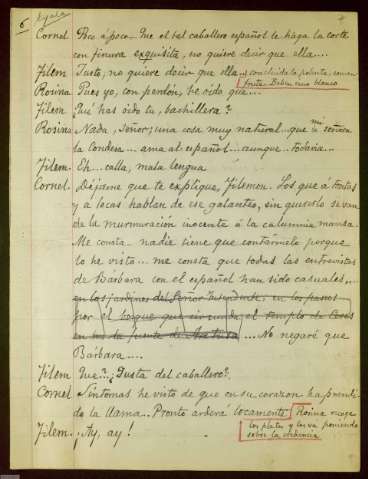 6
Cornel. Poco á poco. Que el tal caballero español le haga la corte
con finura exquisita, no quiere decir que ella...
Filem. Justo, no quiere decir que ella
concluida la polenta, comen
fruta. Beben vino blanco
Rosina Pues yo, con perdón, he oido que...
Filem. Qué has oido tu, bachillera?
Rosina Nada, Señor; una cosa muy natural... que mi señora
la Condesa... ama al español... aunque todavía...
Filem. Eh... calla, mala lengua
Cornel. Déjame que te explique, Filemon. Los que á tontas
y a locas hablan de ese galanteo, sin quererlo se van
de la murmuración inocente á la calumnia mansa.
Me consta... nadie tiene que contármelo porque
lo he visto... me consta que todas las entrevistas
de Bárbara con el español han sido casuales,...
en los jardines del Señor Intendente, en los paseos
por el bosque que circunda el templo de Ceres
en la fuente de Aretusa... No negaré que
Bárbara....
Filem Que?.. ¿Gusta del caballero?
Cornel Síntomas he visto de que en su corazon ha prendi-
do la llama... Pronto arderá locamente
Rosina recoge
los platos y los va poniendo
sobre la
Filem. ¡Ay, ay!